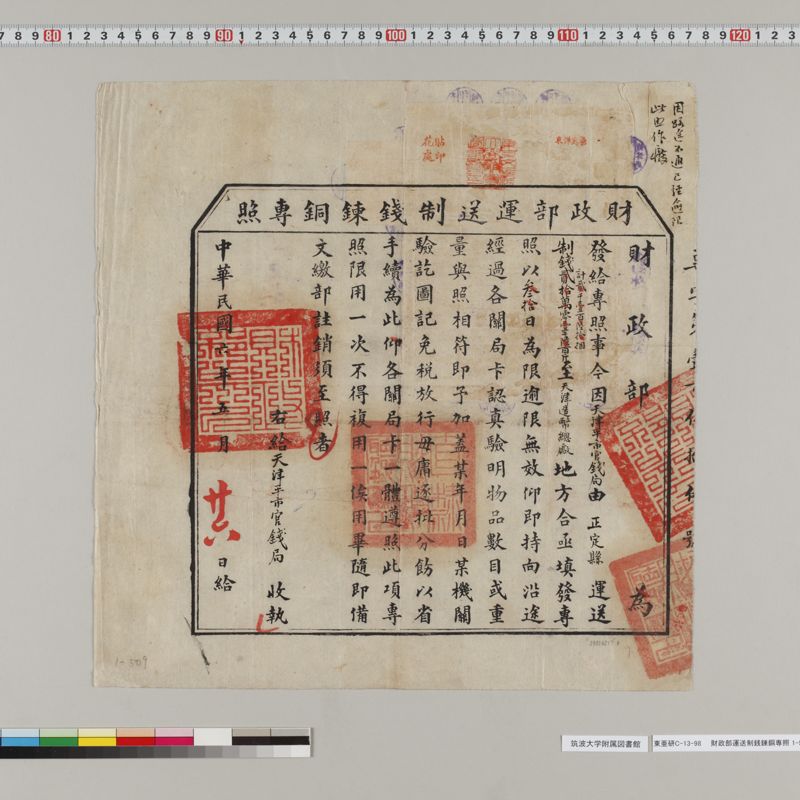 因路途不通已經逾限
此照作廢
貼印
花處
財政部運送制錢鍊銅專照
財政部為
發給專照事今因天津平市官錢局由正定縣運送
制錢貳拾萬零
至天津造幣總廠地方合亟填發專
照以叁拾日為限逾限無效仰即持向沿途
經過各關局卡認真驗明物品數目或重
量與照相符即予加蓋某年月日某機關
驗訖圖記免稅放行毋庸逐批分飭以省
手續為此仰各關局卡一體遵照此項專
照限用一次不得複用一俟用畢隨即備
文繳部註銷須至照者
右給天津平市官錢局收執
中華民國六年五月廿六日給
1-509
筑波大学附属図書館
東亜研C-13-98 財政部運送制銭錬銅専照 1-5
7 8 9 80 1 2 3 4 5 6 7 8 9 90 1 2 3 4 5 6 7 8 9 100 1 2 3 4 5 6 7 8 9 110 1 2 3 4 5 6 7 8 9 120 1 2 3